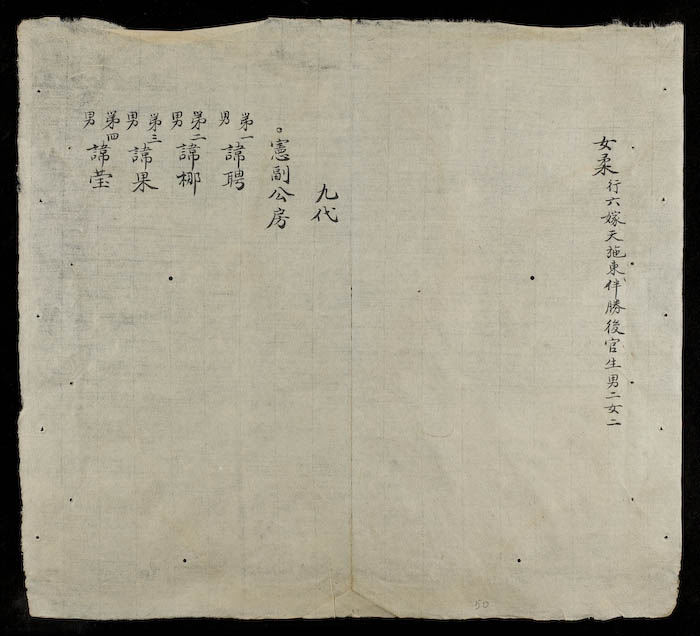 女柔行六嫁天施東伴勝後官生男二女二
九代
憲副公房
第一男諱聘
第二男諱梛
第三男諱果
第四男諱莹
50